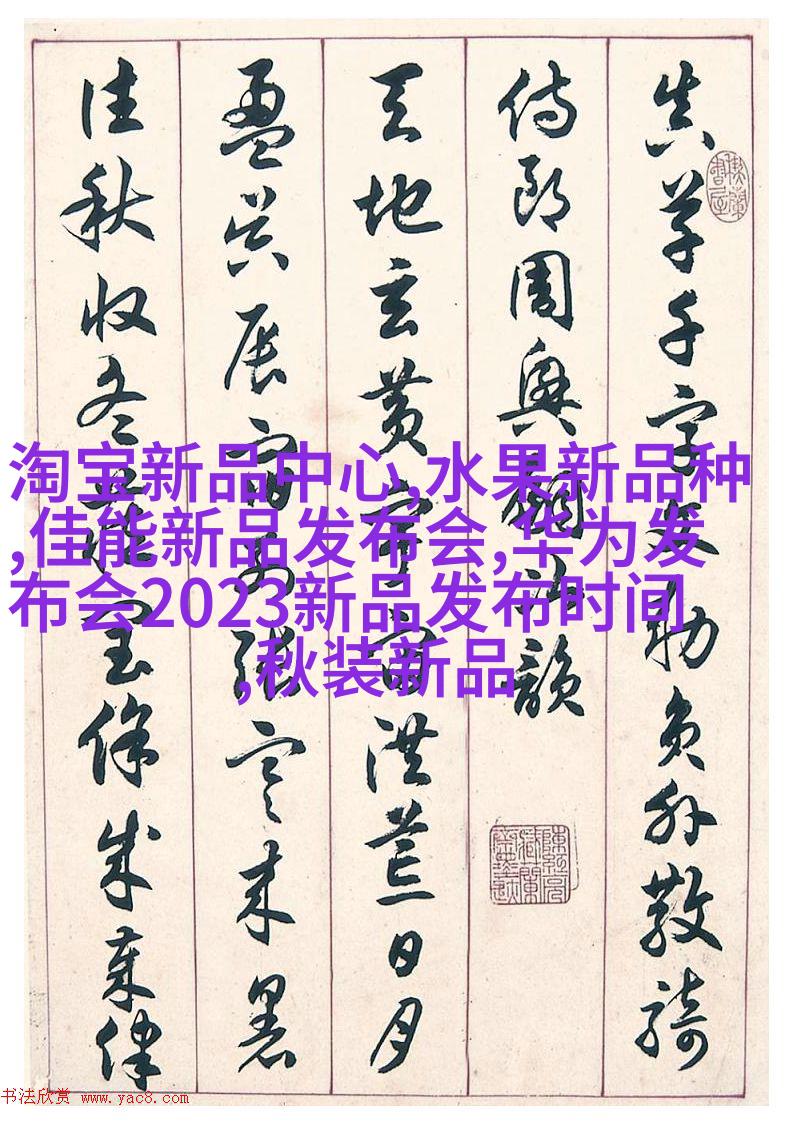 真草千字文勅員外散騎
侍郎周興嗣次韻
天地玄黃宇宙洪荒日月
盈昃辰宿列張寒來暑
往秋收冬藏閏餘成歲律
淘宝新品中心,水果新品种
,佳能新品发布会,华为发
布会2023新品发布时间
,秋装新品
书法欣赏 www.yac8.com